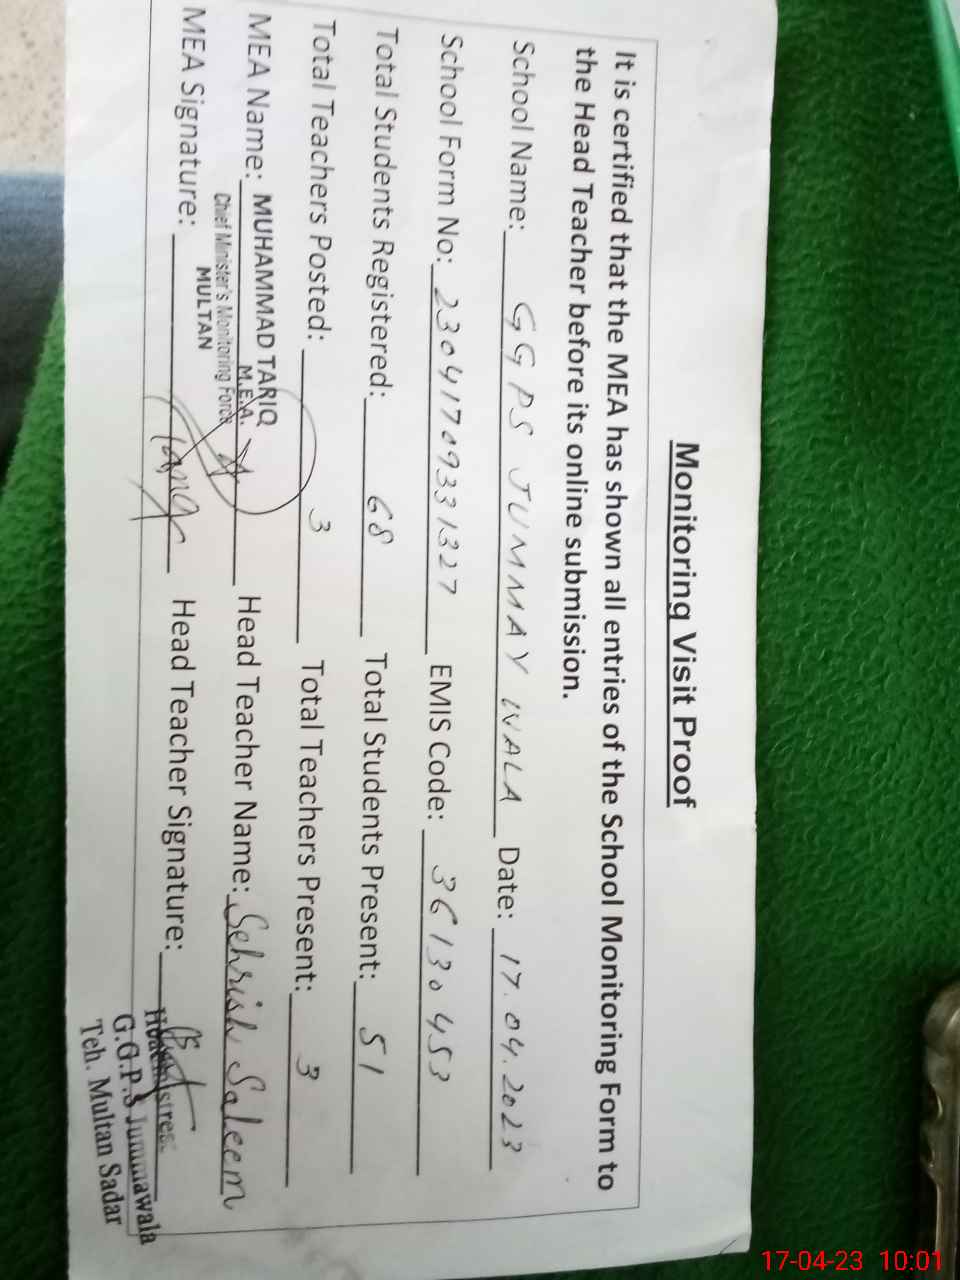 Monitoring Visit Proof
It is certified that the MEA has shown all entries of the School Monitoring Form to
the Head Teacher before its online submission.
School Name: GGPS JUMMAY WALA Date: 17.04.2023
School Form No: 23041709331327 EMIS Code: 36130453
Total Students Registered: 68 Total Students Present: 51
Total Teachers Posted: 3 Total Teachers Present: 3
MEA Name: MUHAMMAD TARIQ Head Teacher Name: Sehrish Saleem
M.E.A.
Chief Minister's Monitoring Force
MULTAN
MEA Signature: Head Teacher Signature:
G.G.P.S Jummawala
Teh. Multan Sadar
17-04-23 10:01